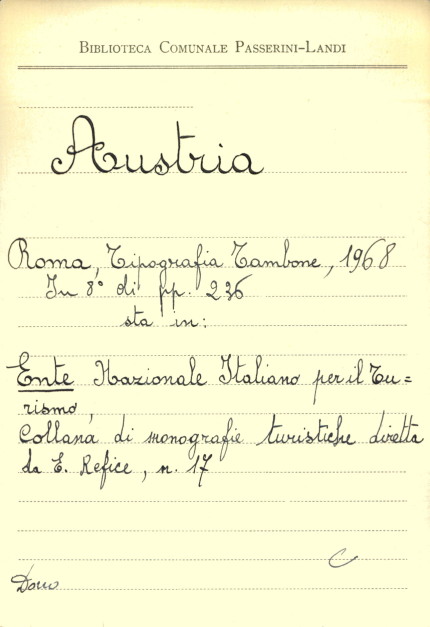 BIBLIOTECA COMUNALE PASSERINI-LANDI
Austria
Roma, Tipografia Tambone, 1968
In 8° di pp. 236
sta in:
Ente Nazionale Italiano per il Tu=
rismo,
Collana di monografie turistiche diretta
da E. Refice, n. 17
C
Dono